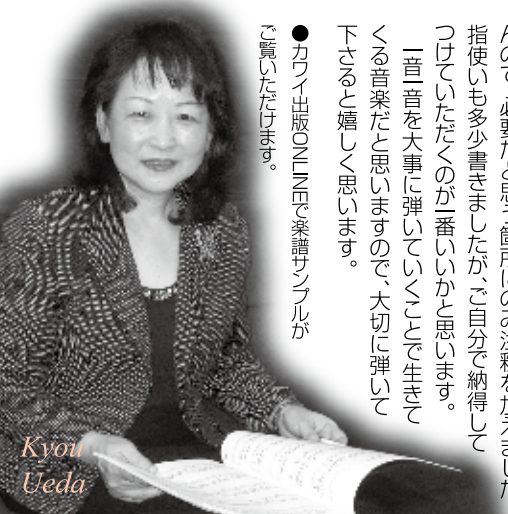 んので、必要だと思う箇所にのみ注釈を加えました
指使いも多少書きましたが、ご自分で納得して
つけていただくのが一番いいかと思います。
一音一音を大事に弾いていくことで生きて
くる音楽だと思いますので、大切に弾いて
下さると嬉しく思います。
●カワイ出版ONLINEで楽譜サンプルが
ご覧いただけます。
Kyou
Ueda